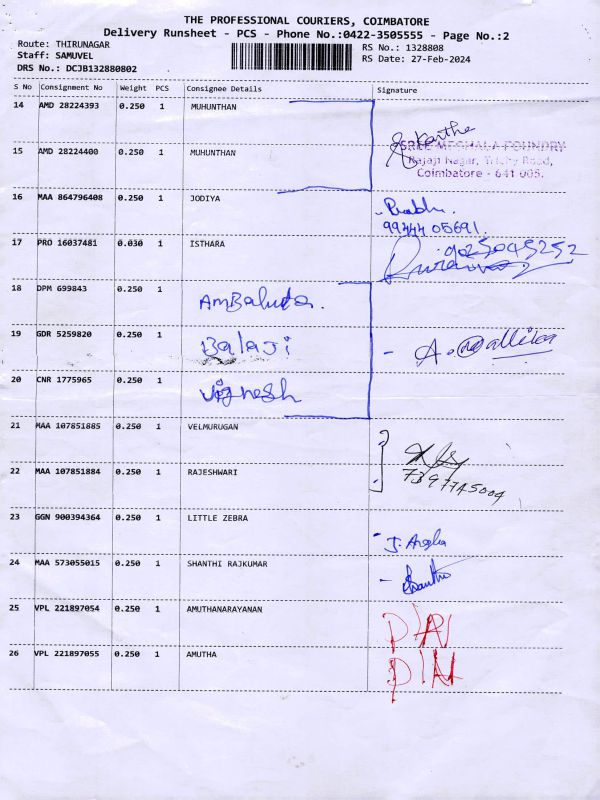 THE PROFESSIONAL COURIERS, COIMBATORE
Delivery Runsheet - PCS - Phone No.:0422-3505555 - Page No.:2
Route: THIRUNAGAR
RS No.: 1328808
Staff: SAMUVEL
RS Date: 27-Feb-2024
DRS No.: DCJB132880802
S No Consignment No Weight PCS Consignee Details Signature
14 AMD 28224393 0.250 1 MUHUNTHAN
Karthe
SREE MEGHALA FOUNDRY
15 AMD 28224400 0.250 1 MUHUNTHAN
Rajaji Nagar, Trichy Road,
Coimbatore - 641 005.
16 MAA 864796408 0.250 1 JODIYA
- Prabhu.
99444 05691
17 PRO 16037481 0.030 1 ISTHARA
9025045252
18 DPM 699843 0.250 1
AmBaluda.
19 GDR 5259820 0.250 1 Balaji
- A.
20 CNR 1775965 0.250 1 Vignesh
21 MAA 107851885 0.250 1 VELMURUGAN
22 MAA 107851884 0.250 1 RAJESHWARI
7397745004
23 GGN 900394364 0.250 1 LITTLE ZEBRA
J. Angla
24 MAA 573055015 0.250 1 SHANTHI RAJKUMAR
- Shanthi
25 VPL 221897054 0.250 1 AMUTHANARAYANAN
26 VPL 221897055 0.250 1 AMUTHA